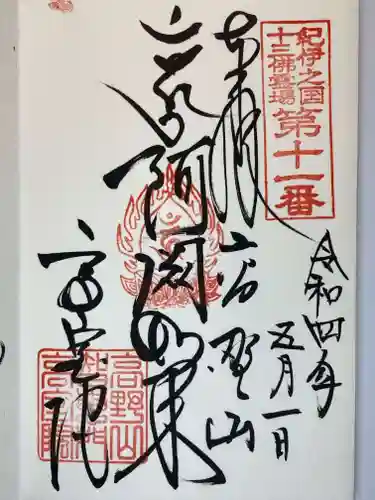 紀伊之国
十三佛霊場
第十一番
奉拝
令和四年
五月一日
高野山
阿閦如来
高室院
高野山
高室院